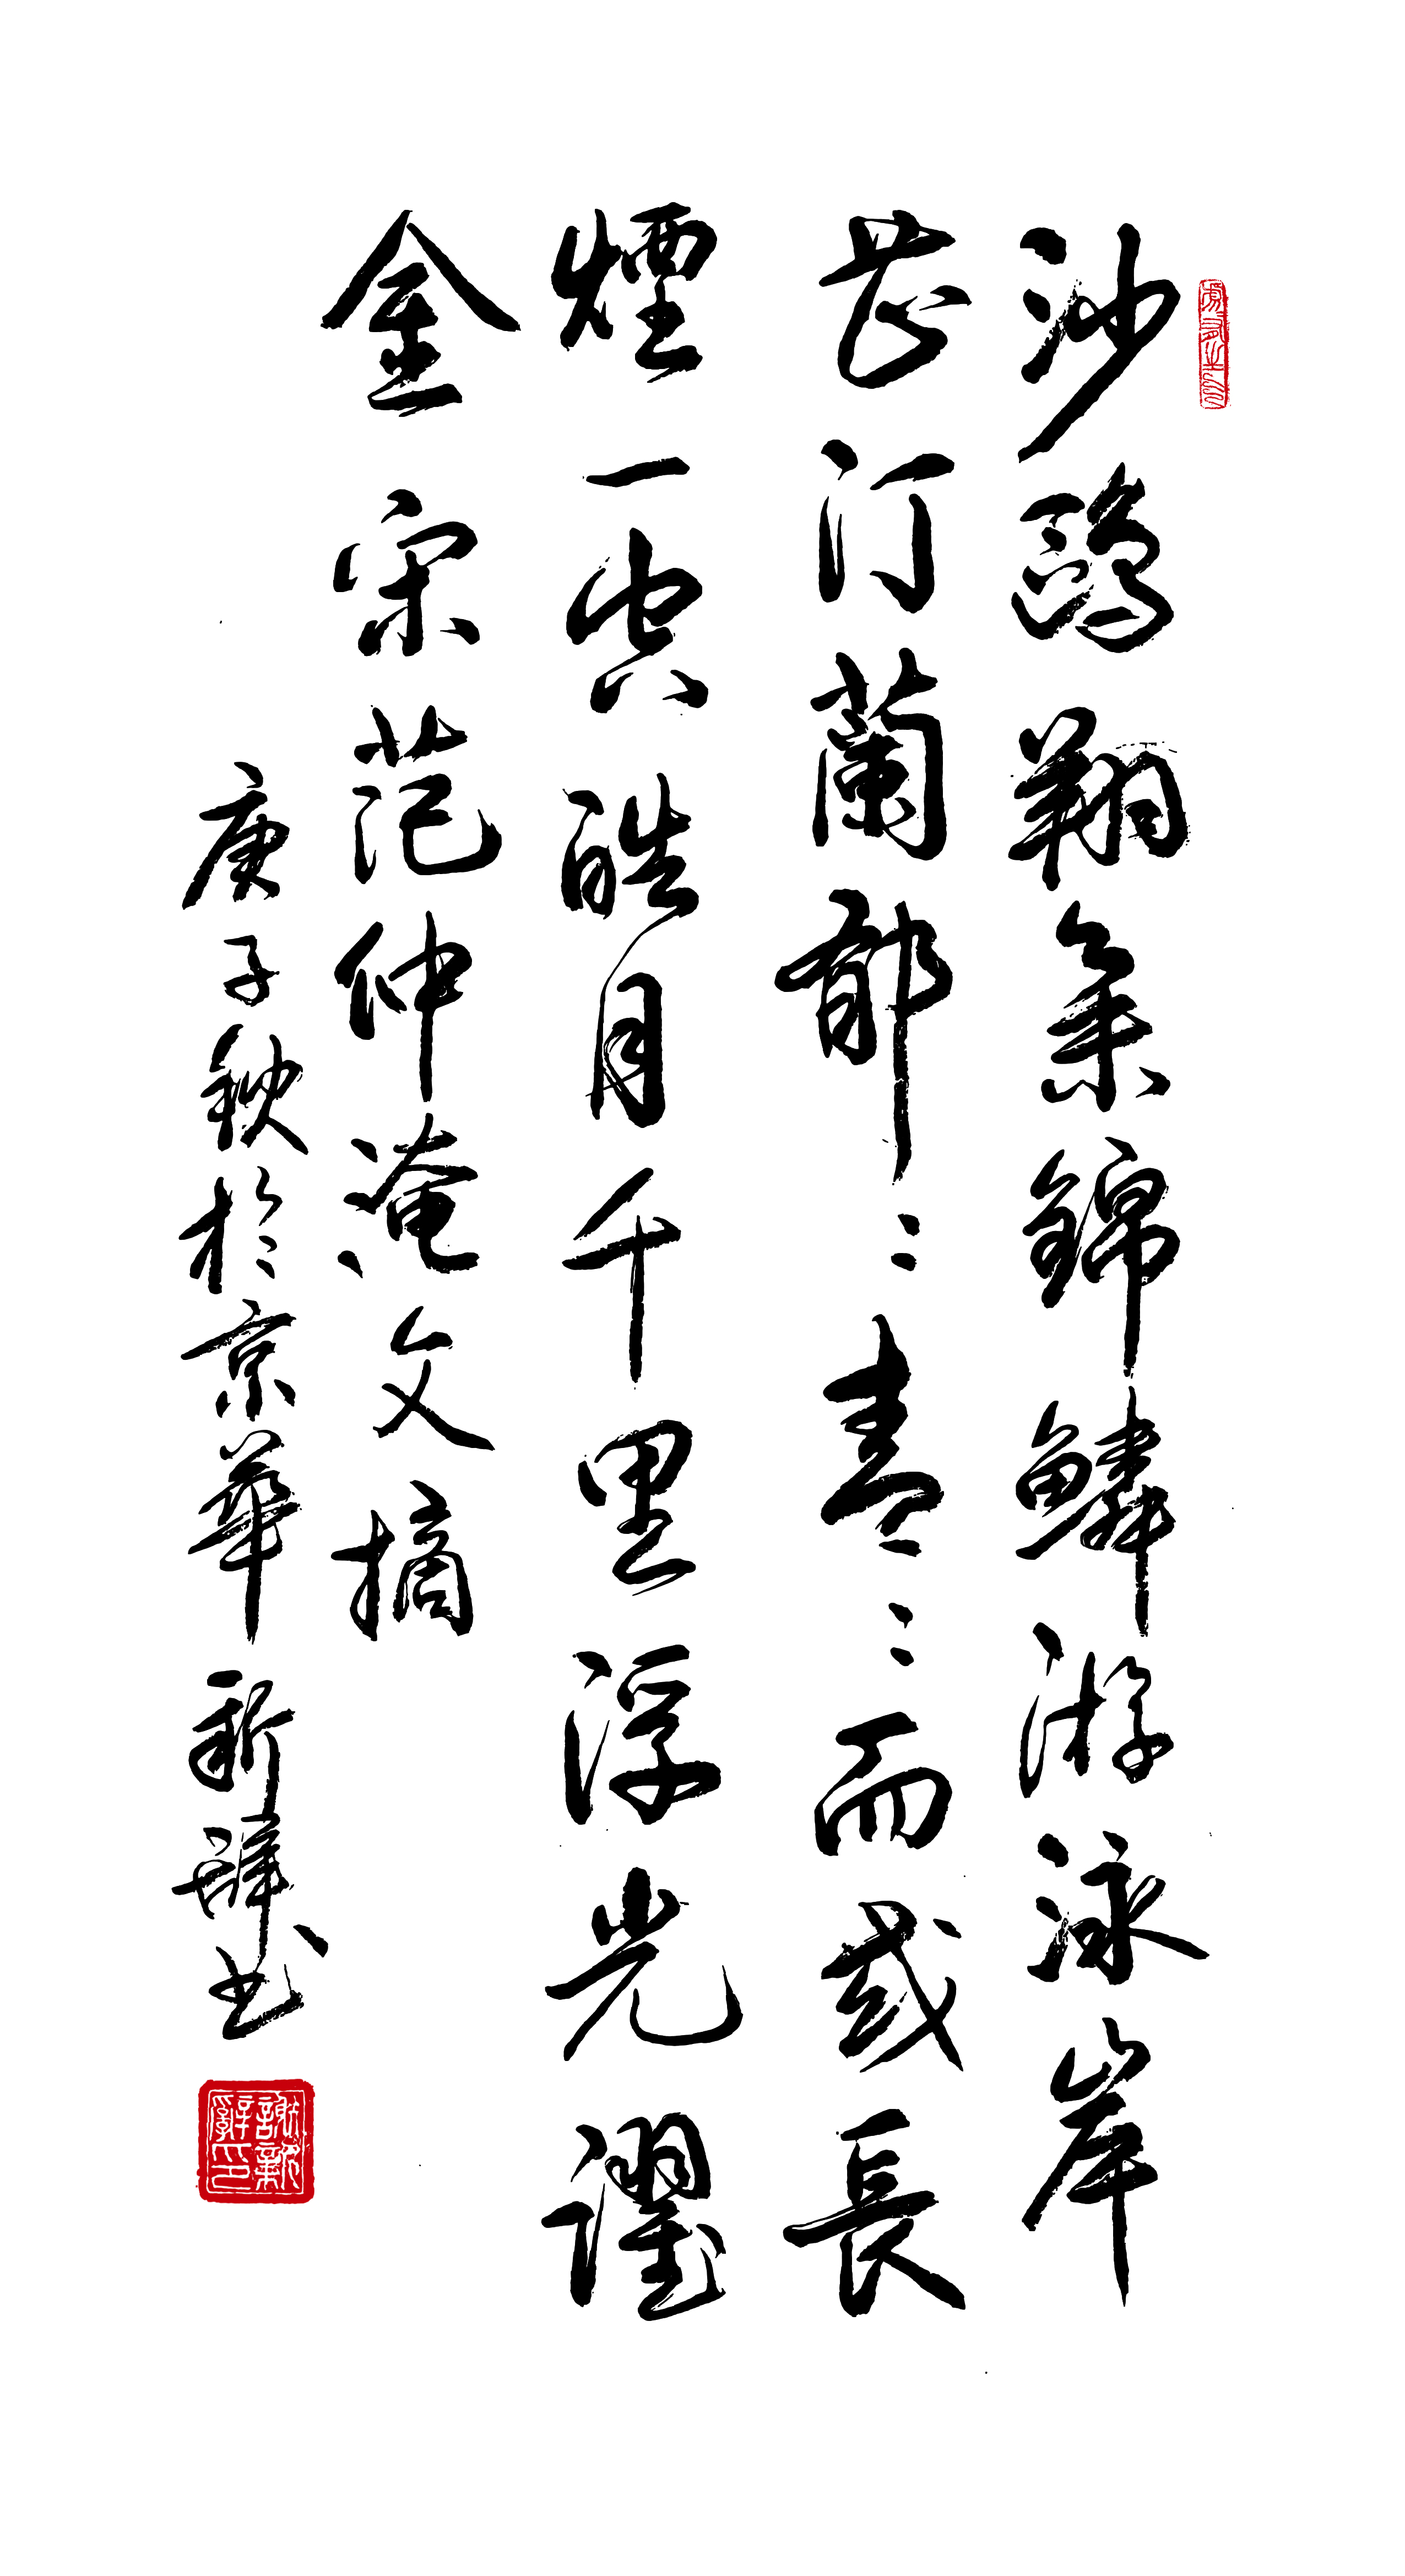 沙鷗翔集錦鱗游泳岸
芷汀蘭郁〻青〻而或長
煙一空皓月千里浮光躍
金宋范仲淹文摘
庚子秋於京華新辭书
謝新辭印